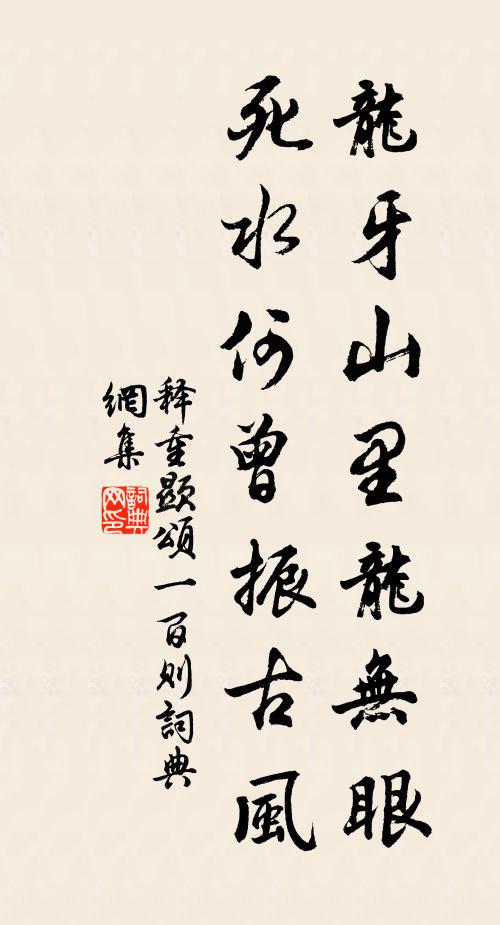 龍牙山里龍無眼
死水何曾振古風
释重顯頌一百则詞典
網集
詞典
网印